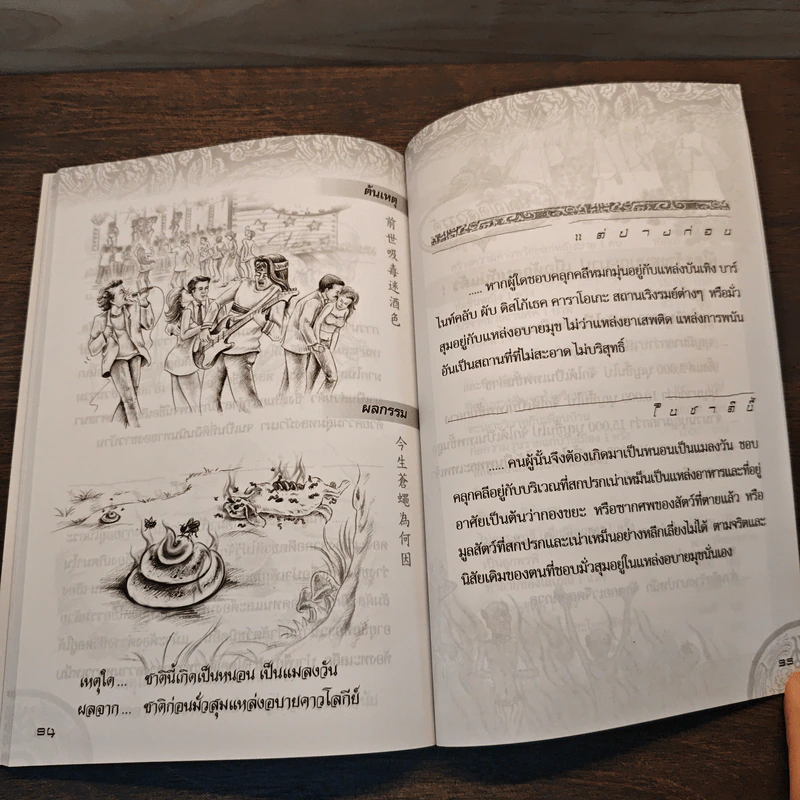 ต้นเหตุ
前世吸毒迷酒色
ผลกรรม
今生蒼蠅為何因
เหตุใด ... ชาตินี้เกิดเป็นหนอน เป็นแมลงวัน
ผลจาก ... ชาติก่อนมั่วสุมแหล่งอบายคาวโลกีย์
94
แต่ปางก่อน
..... หากผู้ใดชอบคลุกคลีหมกมุ่นอยู่กับแหล่งบันเทิง บาร์
ไนท์คลับ ผับ ดิสโก้เธค คาราโอเกะ สถานเริงรมย์ต่างๆ หรือมั่ว
สุมอยู่กับแหล่งอบายมุข ไม่ว่าแหล่งยาเสพติด แหล่งการพนัน
อันเป็นสถานที่ที่ไม่สะอาด ไม่บริสุทธิ์
ในชาตินี้
..... คนผู้นั้นจึงต้องเกิดมาเป็นหนอนเป็นแมลงวัน ชอบ
คลุกคลีอยู่กับบริเวณที่สกปรกเน่าเหม็นเป็นแหล่งอาหารและที่อยู่
อาศัยเป็นต้นว่ากองขยะ หรือซากศพของสัตว์ที่ตายแล้ว หรือ
มูลสัตว์ที่สกปรกและเน่าเหม็นอย่างหลีกเลี่ยงไม่ได้ ตามจริตและ
นิสัยเดิมของตนที่ชอบมั่วสุมอยู่ในแหล่งอบายมุขนั่นเอง
95